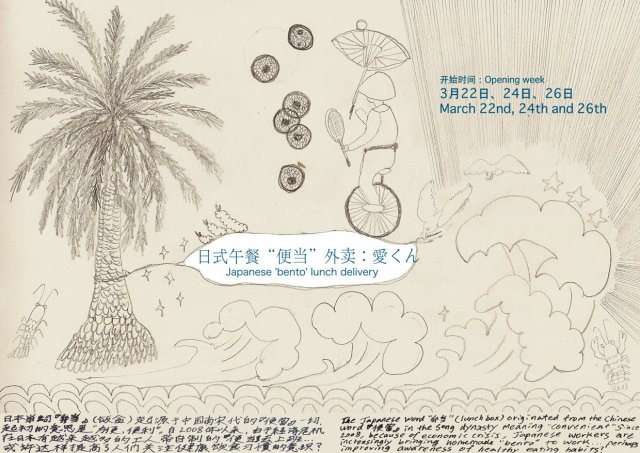 开始时间：Opening week
3月22日、24日、26日
March 22nd, 24th and 26th
日式午餐“便当”外卖：愛くん
Japanese 'bento' lunch delivery
日本単詞『弁当』(饭盒) 起源于中国南宋代的『便當』一切
是包的意思是 "方便, 便利"。自2008年以来, 由于経済危机
在日本有越来越多的的工人 带自制的"便当去上班...
或许这样提高了人们关注健康饮食习惯的意识?
The Japanese word "弁当" (lunch box) originated from the Chinese
word "便當" in the Song dynasty meaning "convenient" Since
2008, because of economic crisis, Japanese workers are
increasingly bringing homemade "bento" to work... perhaps
improving awareness of healthy eating habits!